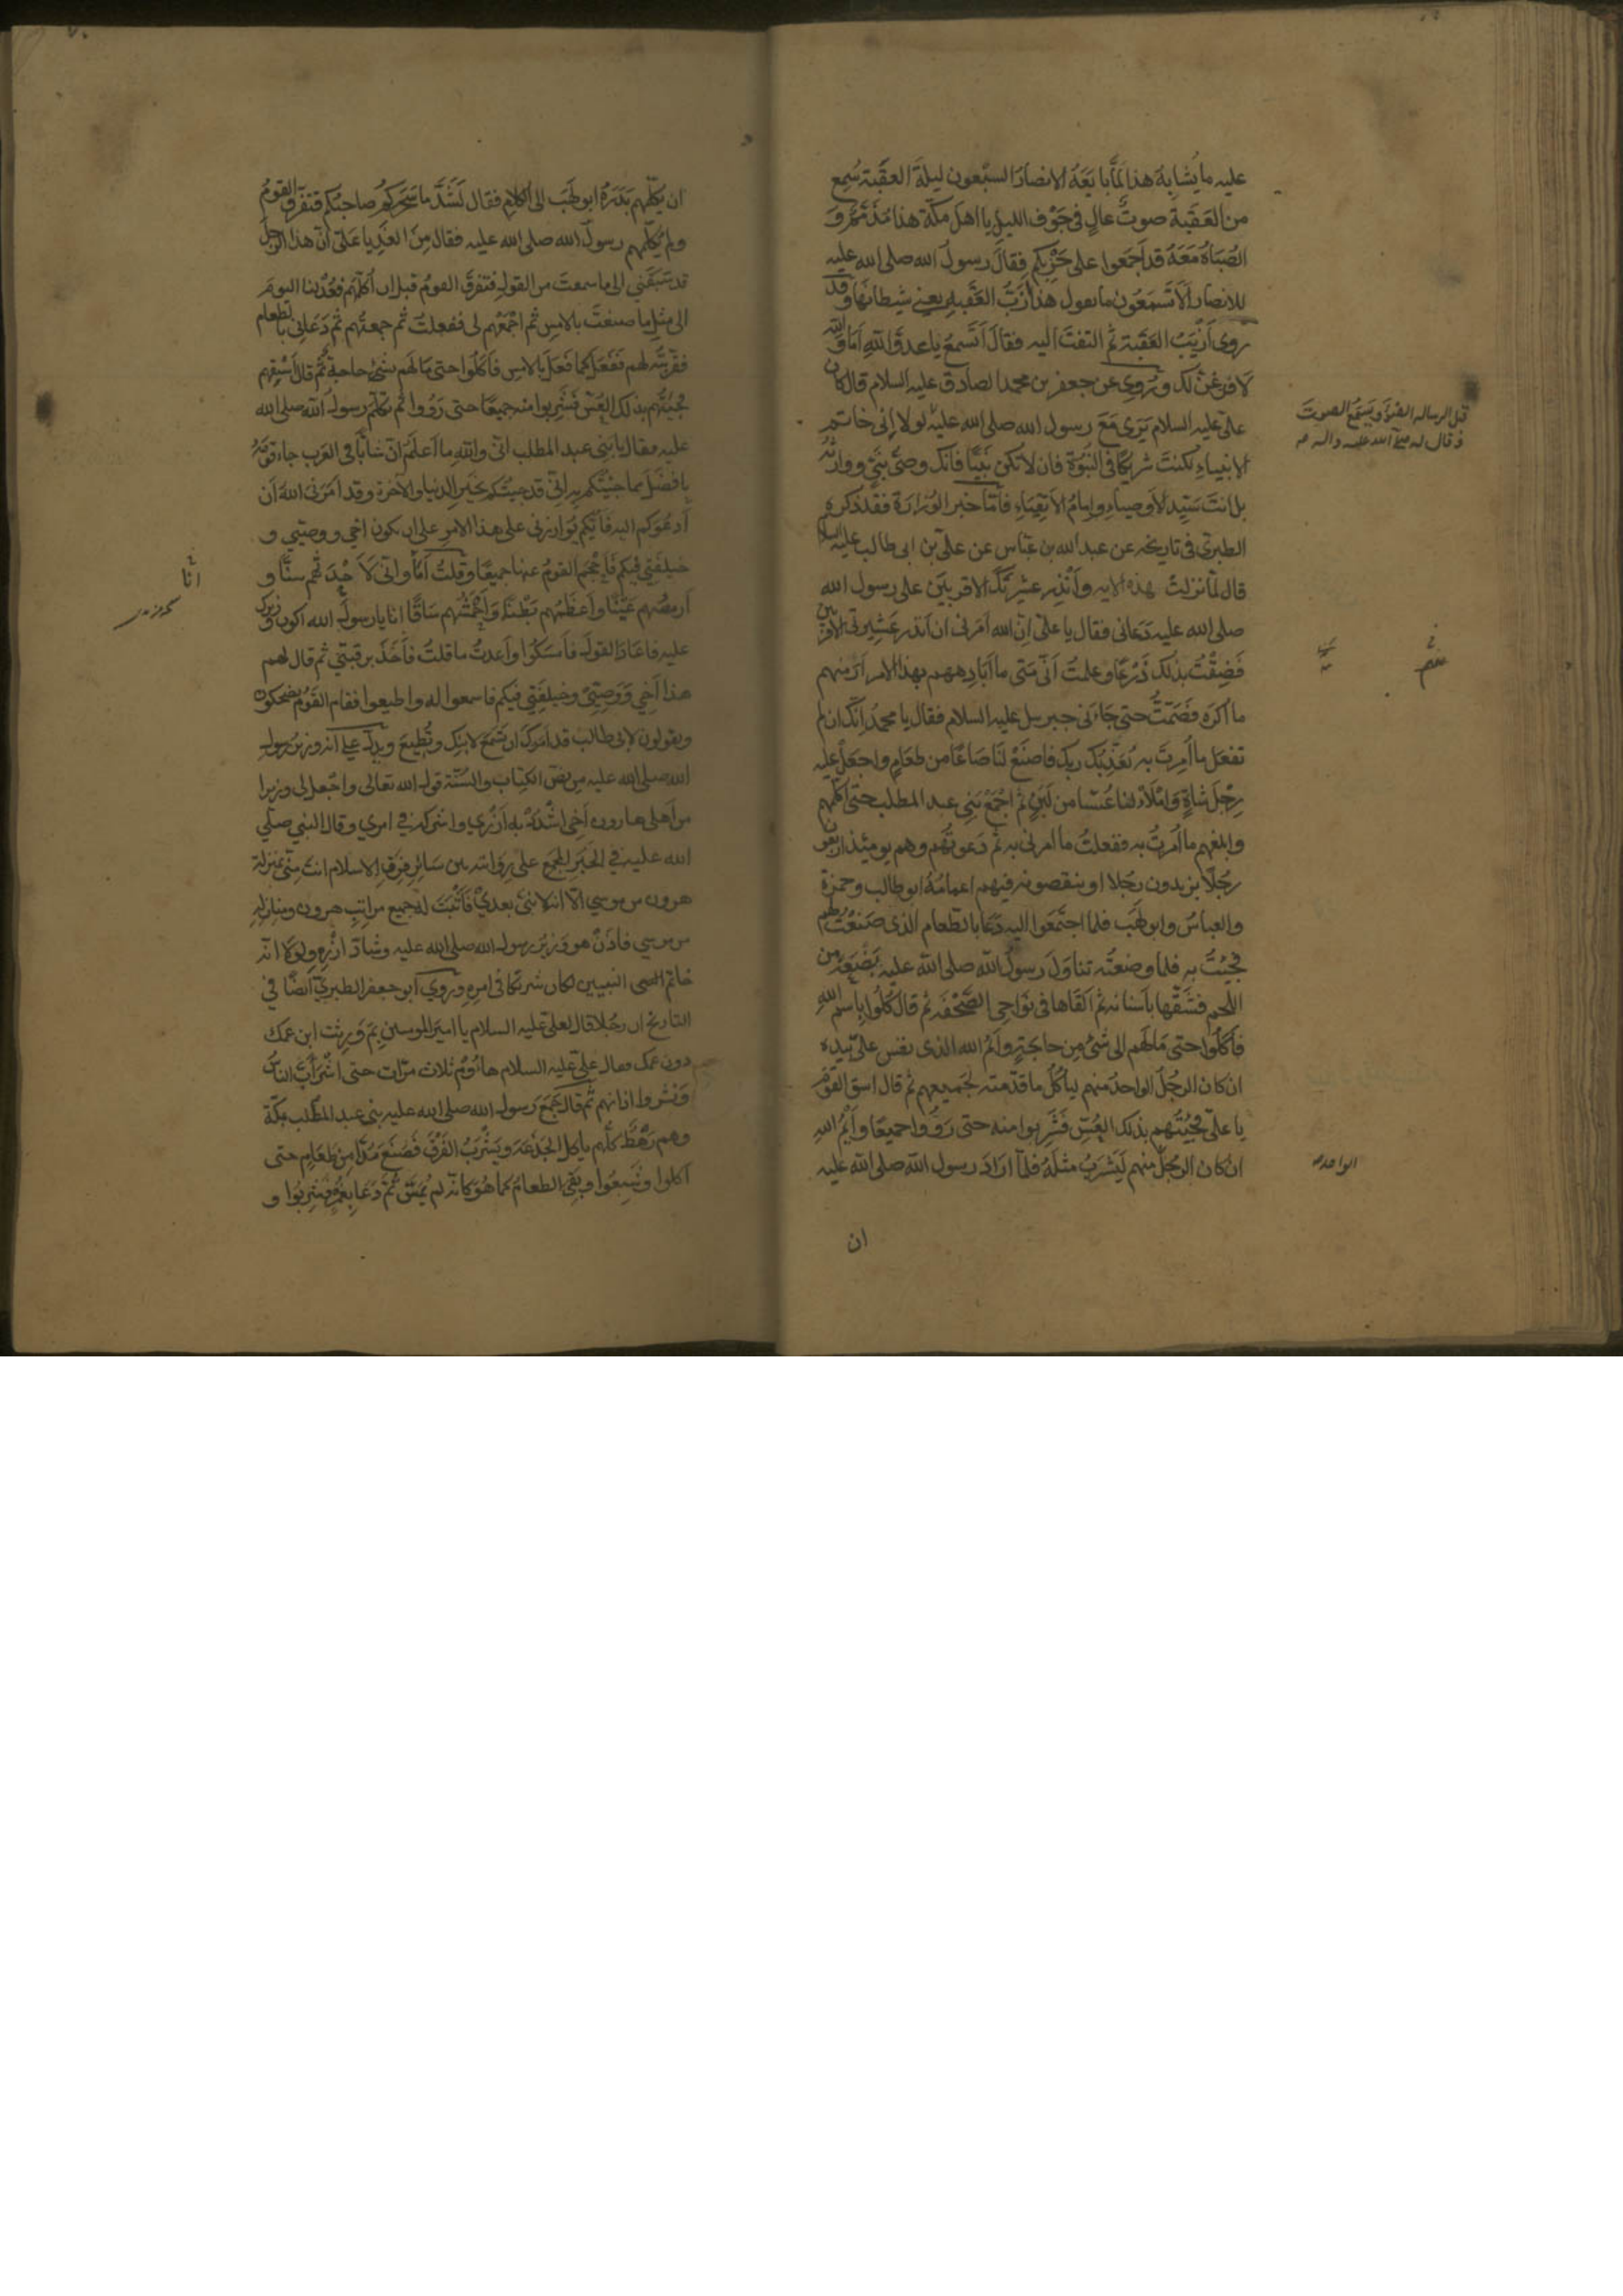 عليه ما يشابه هذا لَمّا بايَعَهُ الانصارُ السبعون ليلةَ العقَبة سُمِع
من العَقَبة صوتٌ عالٍ فى جَوْف الليل يا اهلَ مكّة هذا مُذَمَّمٌ و
الصُباةُ مَعَهُ قد اَجمَعوا على حَرْبكم فقالَ رسولُ الله صلى الله عليه
للانصار اَلا تَسْمَعُون ما يقول هذا اَزَبُّ العَقَبه يعنى شيطانها وقد
روى اَزْيَبُ العَقَبة ثم التفتَ اليه فقالَ اَتَسمعُ يا عدوَّ اللهِ اَمَا والله
لاَفرُغنَّ لك ورُوِى عن جعفر بن محمد الصادق عليه السلام قال كان
علىّ عليه السلام يَرَى مَعَ رسول الله صلى الله عليه لولا اِنى خاتم
الانبياءِ لكنتَ شريكًا فى النُبُوّة فان لا تكن نَبِيًّا فانّك وصىُّ نبىٍّ ووارثُه
بل انتَ سَيّد الاَوصياءِ وامامُ الاَتقِيَاءِ فامّا خبر الوَزارَة فقد ذكره
الطبرىّ فى تاريخه عن عبد الله بن عبّاس عن علىّ بن ابى طالب عليه السلام
قال لمّا نزلت هذه الايه وَأَنْذِر عَشِيرَتَكَ الاقربينَ على رسول الله
صلى الله عليه دَعانى فقال يا علىّ اِنّ الله اَمَرنى ان اُنذر عَشِيرتى الاقربين
فَضِقْتُ بذلك ذَرْعًا وعلمتُ اَنّى مَتى ما اُبَادِهِم بهذا الامر اَرَ منهم
ما اَكرَه فَصَمَتُّ حتى جاءنى جبريل عليه السلام فقال يا محمدُ اِنّك ان لم
تفعَل ما اُمِرتَ به يُعَذِّبْكَ ربك فاصنَعْ لَنَا صَاعًا من طعامٍ واجعَل عليه
رِجْلَ شاةٍ وَاملَأ لنا عُسًّا من لَبَنٍ ثم اجْمَعْ بَنى عبد المطلب حتى اُكلّمهم
وابلغهم ما اُمرتُ به ففعلتُ ما امرنى به ثم دَعوتُهم وهم يومئذ اربعون
رجُلًا يزيدون رجُلا او ينقصونه فيهم اعمامُهُ ابو طالب وحمزة
والعباسُ وابو لهَب فلما اجتمَعوا اليه دَعَا بالطعام الذى صَنَعْتُ لهم
فجِئتُ به فلما وضعتُه تناوَلَ رسولُ الله صلى الله عليه بَضْعَةً من
اللحم فشَقّها باَسنانه ثم اَلقَاها فى نَواحِى الصَّحْفَه ثم قال كُلُوا باسم الله
فاَكلُوا حتى مَا لَهُم الى شئٍ مِن حاجَةٍ وايمُ الله الذى نفس علىّ بيده
ان كان الرجُلُ الواحدُ منهم لياكُلُ ما قدّمته لجَميعهم ثم قال اسقِ القَوْمَ
يا علىّ فجِئتُهم بذلك العُسّ فَشَرِبوا منه حتى رَوُوا جميعًا وَاَيْمُ اللهِ
ان كان الرجُلُ منهم لَيَشرَبُ مثلَهُ فلمّا ارَادَ رسول الله صلى الله عليه
ان
قبل الرساله الضوءَ ويَسمَع الصوتَ
وقال له صلى الله عليه واله
الواحد
ان يكلّمهم بَدَرَهُ ابو لهَب الى الكلام فقال لَشَدَّ ما سَحَرَكم صاحبكم فتفرّق القومُ
ولم يكلّمهم رسولُ الله صلى الله عليه فقال مِنَ الغَدِ يا عَلىّ اِنّ هذا الرجلَ
قد سَبَقَنى الى ما سمعتَ من القول فتفرقَ القومُ قبل ان اُكلّمهم فعُدْ لنا اليومَ
الى مثل ما صنعتَ بالامسِ ثم اجمَعْهم لى ففعلتُ ثم جمعتُهم ثم دَعَانى بالطعام
فقرّبتُه لهم فَفَعَلَ كما فَعَلَ بالامس فاَكلُوا حتى مَا لَهم بشىءٍ حاجة ثم قال اَسْقِهم
فجِئتُهم بذلك العُسّ فَشَرِبوا منه جميعًا حتى رَوُوا ثم تكلّم رسول الله صلى الله
عليه فقال يا بَنى عبد المطلب انّى والله ما اَعلَمُ اَنّ شابًّا فى العَرَب جاء قومَهُ
بافضَلَ مما جئتُكم به اِنّى قد جئتُكم بخَير الدنيا والآخرة وقد اَمَرَنى اللهُ اَن
اَدعُوَكم اليه فاَيّكم يُوازرنى على هذا الامر على ان يكون اخى ووصيّى و
خليفتى فيكم فَاَحْجَمَ القومُ عنها جميعًا وقلتُ اَنَا وانّى لاَحْدَثُهم سنًّا و
اَرمصُهم عَيْنًا واَعظَمُهم بَطْنًا وَاَحْمَشُهم سَاقًا انا يا رسولَ الله اكون وزيرك
عليه فاعَادَ القولَ فاَمسَكُوا واَعدتُ ما قلتُ فاَخَذَ برقبتى ثم قال لهم
هذا اَخِي وَوَصِيّى وخليفَتِى فيكم فاسمعوا له واطيعوا فقام القَوْم يضحكون
ويقولون لابى طالب قد اَمَرَكَ ان تَسْمَعَ لابنك وتُطِيعَ ويدلّ على انه وزيرُ رسول
الله صلى الله عليه من نصّ الكِتاب والسُّنّة قول الله تعالى واجعل لى وزيرا
من اهلى هارون اَخِى اشْدُدْ به اَزْرِى واشركه فى امرى وقال النبى صلى
الله عليه فى الخَبَر المُجمَع على روَايته بين سَائر فِرَقِ الاسلام انت مِنّى بمنزلة
هرون من موسى الّا انه لا نبىّ بعدى فاَثبَتَ لهُ جميع مراتبِ هرون ومنازله
من موسى فاذَنْ هو وَزيرُ رسول الله صلى الله عليه وشادّ ازْرِه ولولا انه
خاتم النبيين لكان شريكًا فى امره وروى ابو جعفر الطبرىّ ايضًا فى
التاريخ ان رجُلا قال لعلىّ عليه السلام يا امير المومنين بِمَ وَرِثت ابن عمك
دون عمك فقال علىّ عليه السلام هاؤُمُ ثلاث مرّات حتى اشْرَأَبَّ الناسُ
وَنشروا اذانهم ثم قال جَمَعَ رسول الله صلى الله عليه بنى عبد المطّلب بمكّة
وهم رَهْطٌ كلّهم ياكل الجَذَعَةَ ويَشْرَبُ الفَرْقَ فَصَنَعَ مُدًّا مِن طَعَامٍ حتى
اكلوا وشَبِعُوا وبَقِىَ الطعامُ كما هُوَ كانّه لم يُمَسّ ثُمّ دَعَا بِغُمَرٍ فشَرِبُوا و